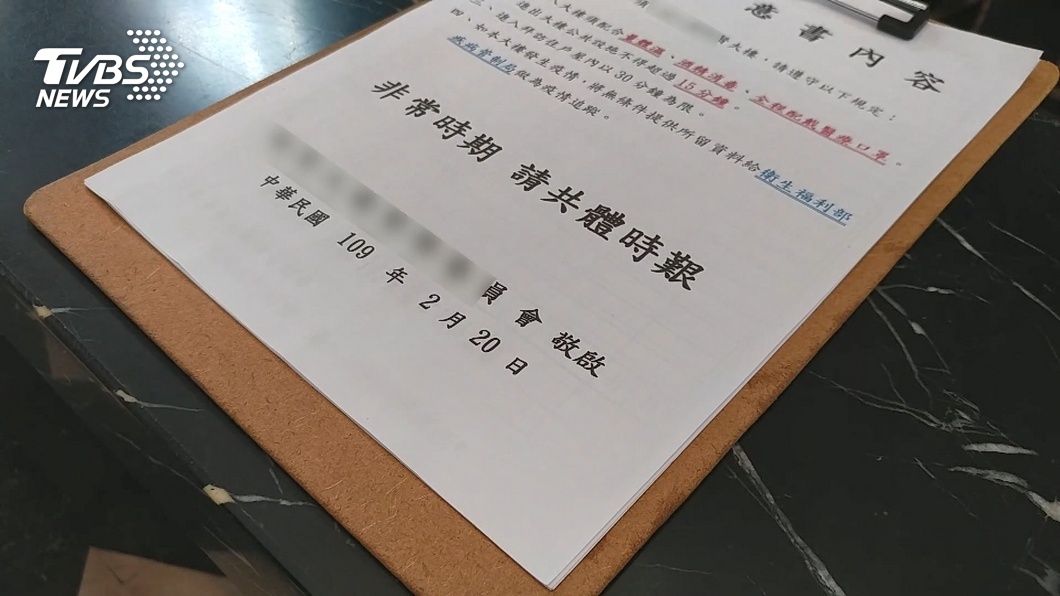 TVBS
NEWS
意書內容
大樓，請遵守以下規定：
大樓須配合量體溫、酒精消毒、全程配戴醫療口罩。
進出大樓公共設施不得超過15分鐘。
三、進入拜訪住戶屋內以30分鐘為限。
四、如本大樓發生疫情，將無條件提供所留資料給衛生福利部
疾病管制局做為疫情追蹤。
非常時期 請共體時艱
員會 敬啟
中華民國 109 年 2 月 20 日